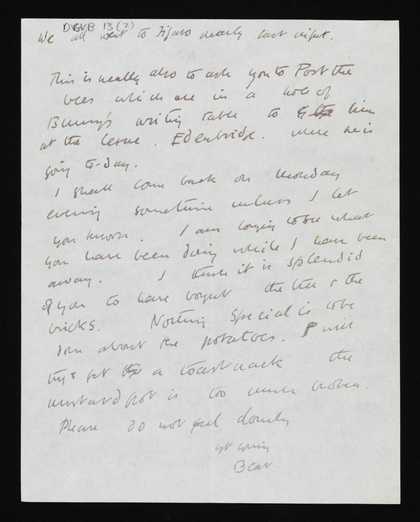 DGVB 13(2)
We all went to Figaro nearly last night.
This is really also to ask you to Post the
bees which are in a hole of
Bunny's writing table to him
at the Cearne. Edenbridge. where he is
going to-day.
I shall come back on Monday
evening sometime unless I let
you know. I am longing to see what
you have been doing while I have been
away. I think it is splendid
of you to have bought the tiles & the
bricks. Nothing special is to be
done about the potatoes. I will
try & get a toastrack the
mustard pot is too much broken.
Please do not feel lonely
yr loving
Bear